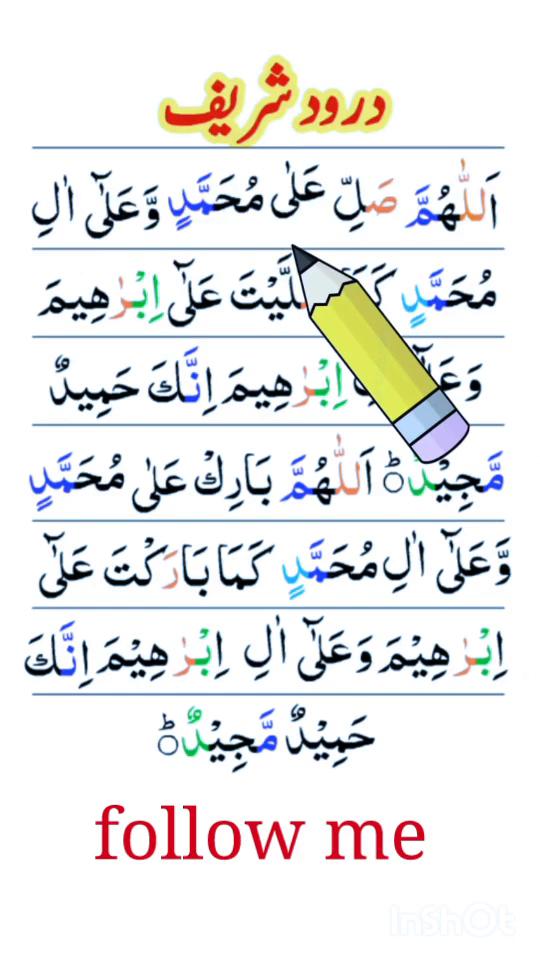 درود شریف
اَللّٰهُمَّ صَلِّ عَلٰى مُحَمَّدٍ وَّعَلٰٓى اٰلِ
مُحَمَّدٍ عَلٰٓى اِبْرٰهِيمَ
اِبْرٰهِيمَ اِنَّكَ حَمِيدٌ
مَّجِيْدٌ ؕ اَللّٰهُمَّ بَارِكْ عَلٰى مُحَمَّدٍ
وَّعَلٰٓى اٰلِ مُحَمَّدٍ كَمَا بَارَكْتَ عَلٰٓى
اِبْرٰهِيْمَ وَعَلٰٓى اٰلِ اِبْرٰهِيْمَ اِنَّكَ
حَمِيْدٌ مَّجِيْدٌ ؕ
follow me
InShOt